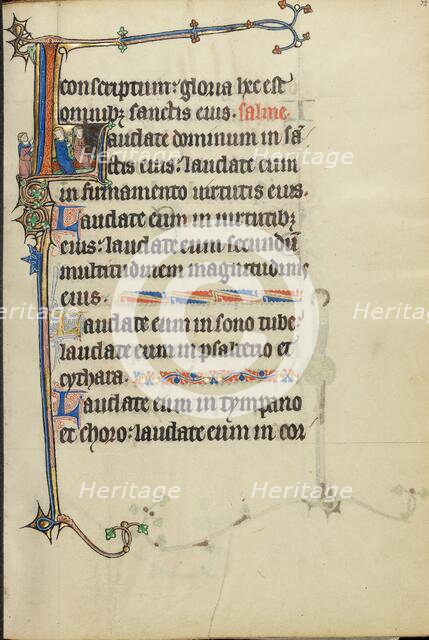 72
conscriptum: gloria hec est
omnibꝫ sanctis eius. salme.
Laudate dominum in sā
ctis eius: laudate eum
in firmamento uirtutis eius.
Laudate eum in uirtutibꝫ
eius: laudate eum secundū
multitudinem magnitudinis
eius.
Laudate eum in sono tube
laudate eum in psalterio et
cythara.
Laudate eum in tympano
et choro: laudate eum in cor
Heritage Heritage
Heritage Heritage Heritage
Heritage Heritage
Heritage Heritage Heritage
Heritage Heritage